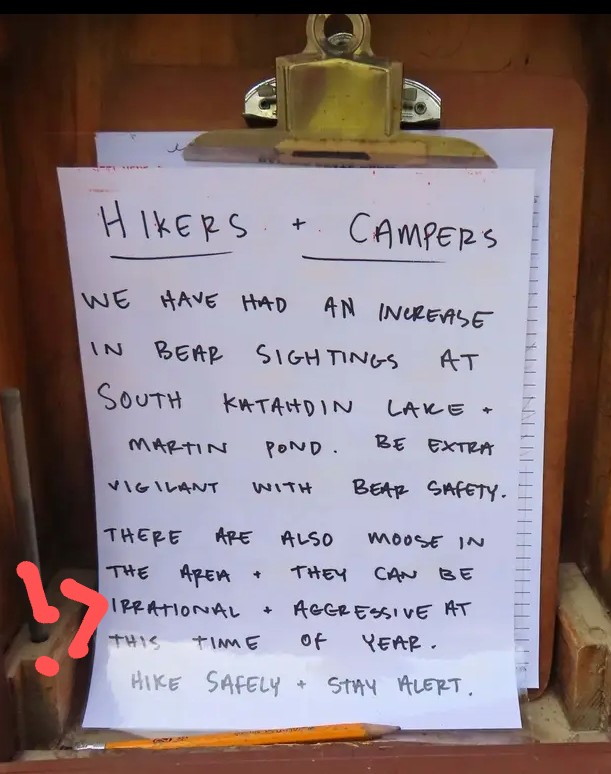 HIKERS + CAMPERS
WE HAVE HAD AN INCREASE
IN BEAR SIGHTINGS AT
SOUTH KATAHDIN LAKE +
MARTIN POND. BE EXTRA
VIGILANT WITH BEAR SAFETY.
THERE ARE ALSO MOOSE IN
THE AREA + THEY CAN BE
!? IRRATIONAL + AGGRESSIVE AT
THIS TIME OF YEAR.
HIKE SAFELY + STAY ALERT.